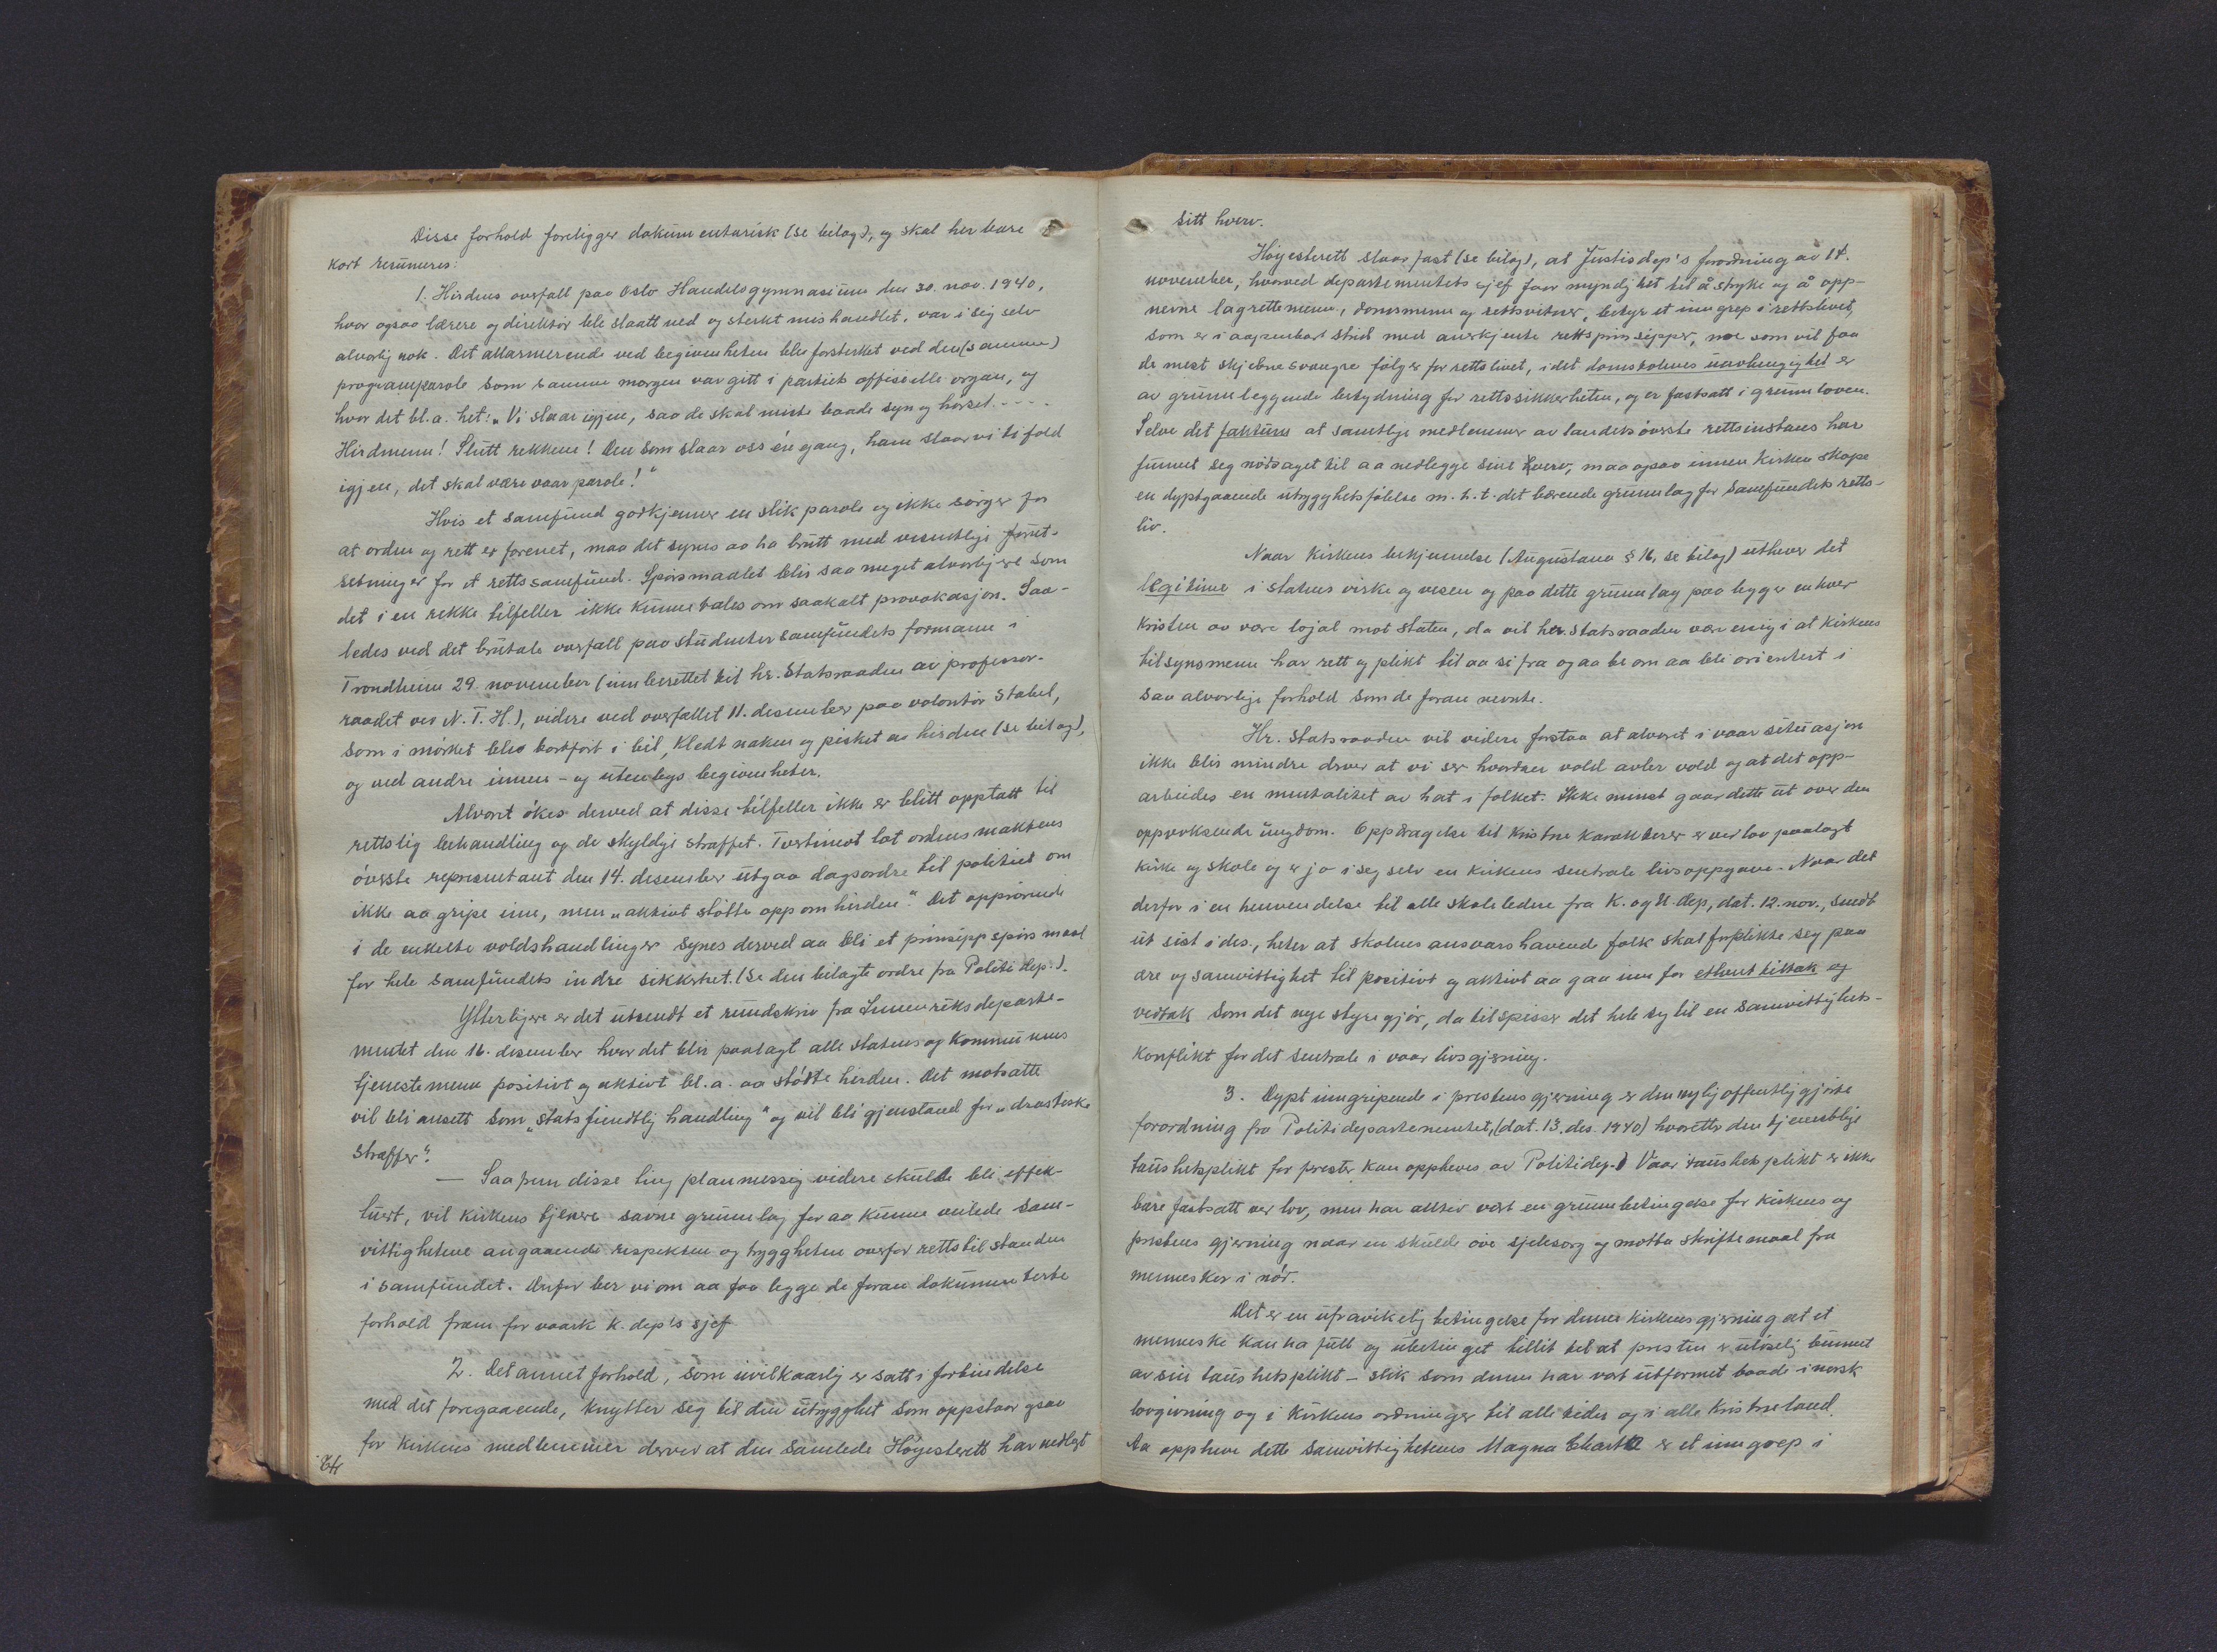 Disse forhold foreligger dokumentarisk (se bilag), og skal her bare
kort resumeres:
1. Hirdens overfall paa Oslo Handelsgymnasium den 30. nov. 1940,
hvor ogsaa lærere og direktør ble slaatt ned og sterkt mishandlet, var i sig selv
alvorlig nok. Det allarmerende ved begivenheten blev forsterket ved den (samme)
programparole som samme morgen var gitt i partiets offisielle organ, og
hvor det bl.a. het: „Vi slaar igjen, saa de skal miste baade syn og hørsel. - - -
Hirdmenn! Slutt rekkene! Den som slaar oss én gang, ham slaar vi ti fold
igjen, det skal være vaar parole!"
Hvis et samfund godkjenner en slik parole og ikke sørger for
at orden og rett er forenet, maa det synes aa ha brutt med vesentlige forut-
setninger for et rettssamfund. Spørsmaalet blir saa meget alvorligere som
det i en rekke tilfeller ikke kunne tales om saakalt provokasjon. Saa-
ledes ved det brutale overfall paa studentersamfundets formann i
Trondheim 29. november (innberettet til hr. Statsraaden av professor-
raadet ved N.T.H.), videre ved overfallet 11. desember paa volontør Stabel,
som i mørket blev bortført i bil, kledt naken og pisket av hirden (se bilag),
og ved andre innen- og utenbys begivenheter.
Alvoret økes derved at disse tilfeller ikke er blitt opptatt til
rettslig behandling og de skyldige straffet. Tvertimot lot ordensmaktens
øverste representant den 14. desember utgaa dagsordre til politiet om
ikke aa gripe inn, men „aktivt støtte opp om hirden." Det opprørende
i de enkelte voldshandlinger synes derved aa bli et prinsippspørsmaal
for hele samfundets indre sikkerhet. (Se den bilagte ordre fra Politidep.).
Ytterligere er det utsendt et rundskriv fra Innenriksdeparte-
mentet den 16. desember hvor det blir paalagt alle statens og kommunens
tjenestemenn positivt og aktivt bl.a. aa støtte hirden. Det motsatte
vil bli ansett som „statsfiendtlig handling" og vil bli gjenstand for „drastiske
straffer".
— Saafremt disse ting planmessig videre skulde bli effek-
tuert, vil kirkens tjenere savne grunnlag for aa kunne veilede sam-
vittighetene angaaende respekten og tryggheten overfor rettstilstanden
i samfundet. Derfor ber vi om aa faa legge de foran dokumenterte
forhold fram for vaark K. dep's sjef
2. Det annet forhold, som uvilkaarlig er satt i forbindelse
med det foregaaende, knytter seg til den utrygghet som oppstaar ogsaa
for kirkens medlemmer derved at den samlede Høyesterett har nedlagt
84
sitt hverv.
Høyesterett slaar fast (se bilag), at Justisdep's forordning av 14.
november, hvorved departementets sjef faar myndighet til å stryke og å opp-
nevne lagrettemenn, domsmenn og rettsvitner, betyr et inngrep i rettslivet,
som er i aapenbar strid med anerkjente rettsprinsipper, noe som vil faa
de mest skjebnesvangre følger for rettslivet, idet domstolenes uavhengighet er
av grunnleggende betydning for rettssikkerheten, og er fastsatt i grunnloven.
Selve det faktum at samtlige medlemmer av landets øverste rettsinstans har
funnet seg nødsaget til aa nedlegge sine hverv, maa ogsaa innen Kirken skape
en dyptgaaende utrygghetsfølelse m.h.t. det bærende grunnlag for Samfundets retts-
liv.
Naar Kirkens bekjennelse (Augustana § 16, se bilag) uthever det
legitime i statens virke og vesen og paa dette grunnlag paalegger enhver
kristen aa være lojal mot staten, da vil her. Statsraaden være enig i at Kirkens
tilsynsmenn har rett og plikt til aa si fra og aa be om aa bli orientert i
saa alvorlige forhold som de foran nevnte.
Hr. Statsraaden vil videre forstaa at alvoret i vaar situasjon
ikke blir mindre derved at vi ser hvordan vold avler vold og at det opp-
arbeides en mentalitet av hat i folket. Ikke minst gaar dette ut over den
oppvoksende ungdom. Oppdragelse til kristne karakterer er ved lov paalagt
kirke og skole og er jo i seg selv en kirkens sentrale livsoppgave. Naar det
derfor i en henvendelse til alle skoleledere fra K. og U. dep, dat. 12. nov., sendt
ut sist i des., heter at skolens ansvarshavende folk skal forplikte seg paa
ære og samvittighet til positivt og aktivt aa gaa inn for ethvert tiltak og
vedtak som det nye styre gjør, da tilspisser det hele seg til en samvittighets-
konflikt for det sentrale i vaar livsgjerning.
3. Dypt inngripende i prestens gjerning er den nylig offentliggjorte
forordning fra Politidepartementet, (dat. 13. des. 1940) hvoretter den tjenestlige
taushetsplikt for prester kan oppheves av Politidep.) Vaar taushetsplikt er ikke
bare fastsatt ved lov, men har alltid vært en grunnbetingelse for kirkens og
prestens gjerning naar en skulde øve sjelesorg og motta skriftemaal fra
mennesker i nød.
Det er en ufravikelig betingelse for denne kirkens gjerning at et
menneske kan ha full og ubetinget tillit til at presten er uløselig bunnet
av sin taushetsplikt – slik som denne har vært utformet baade i norsk
lovgivning og i kirkens ordninger til alle tider og i alle kristne land.
Aa oppheve dette samvittighetenes Magna Charta er et inngrep i